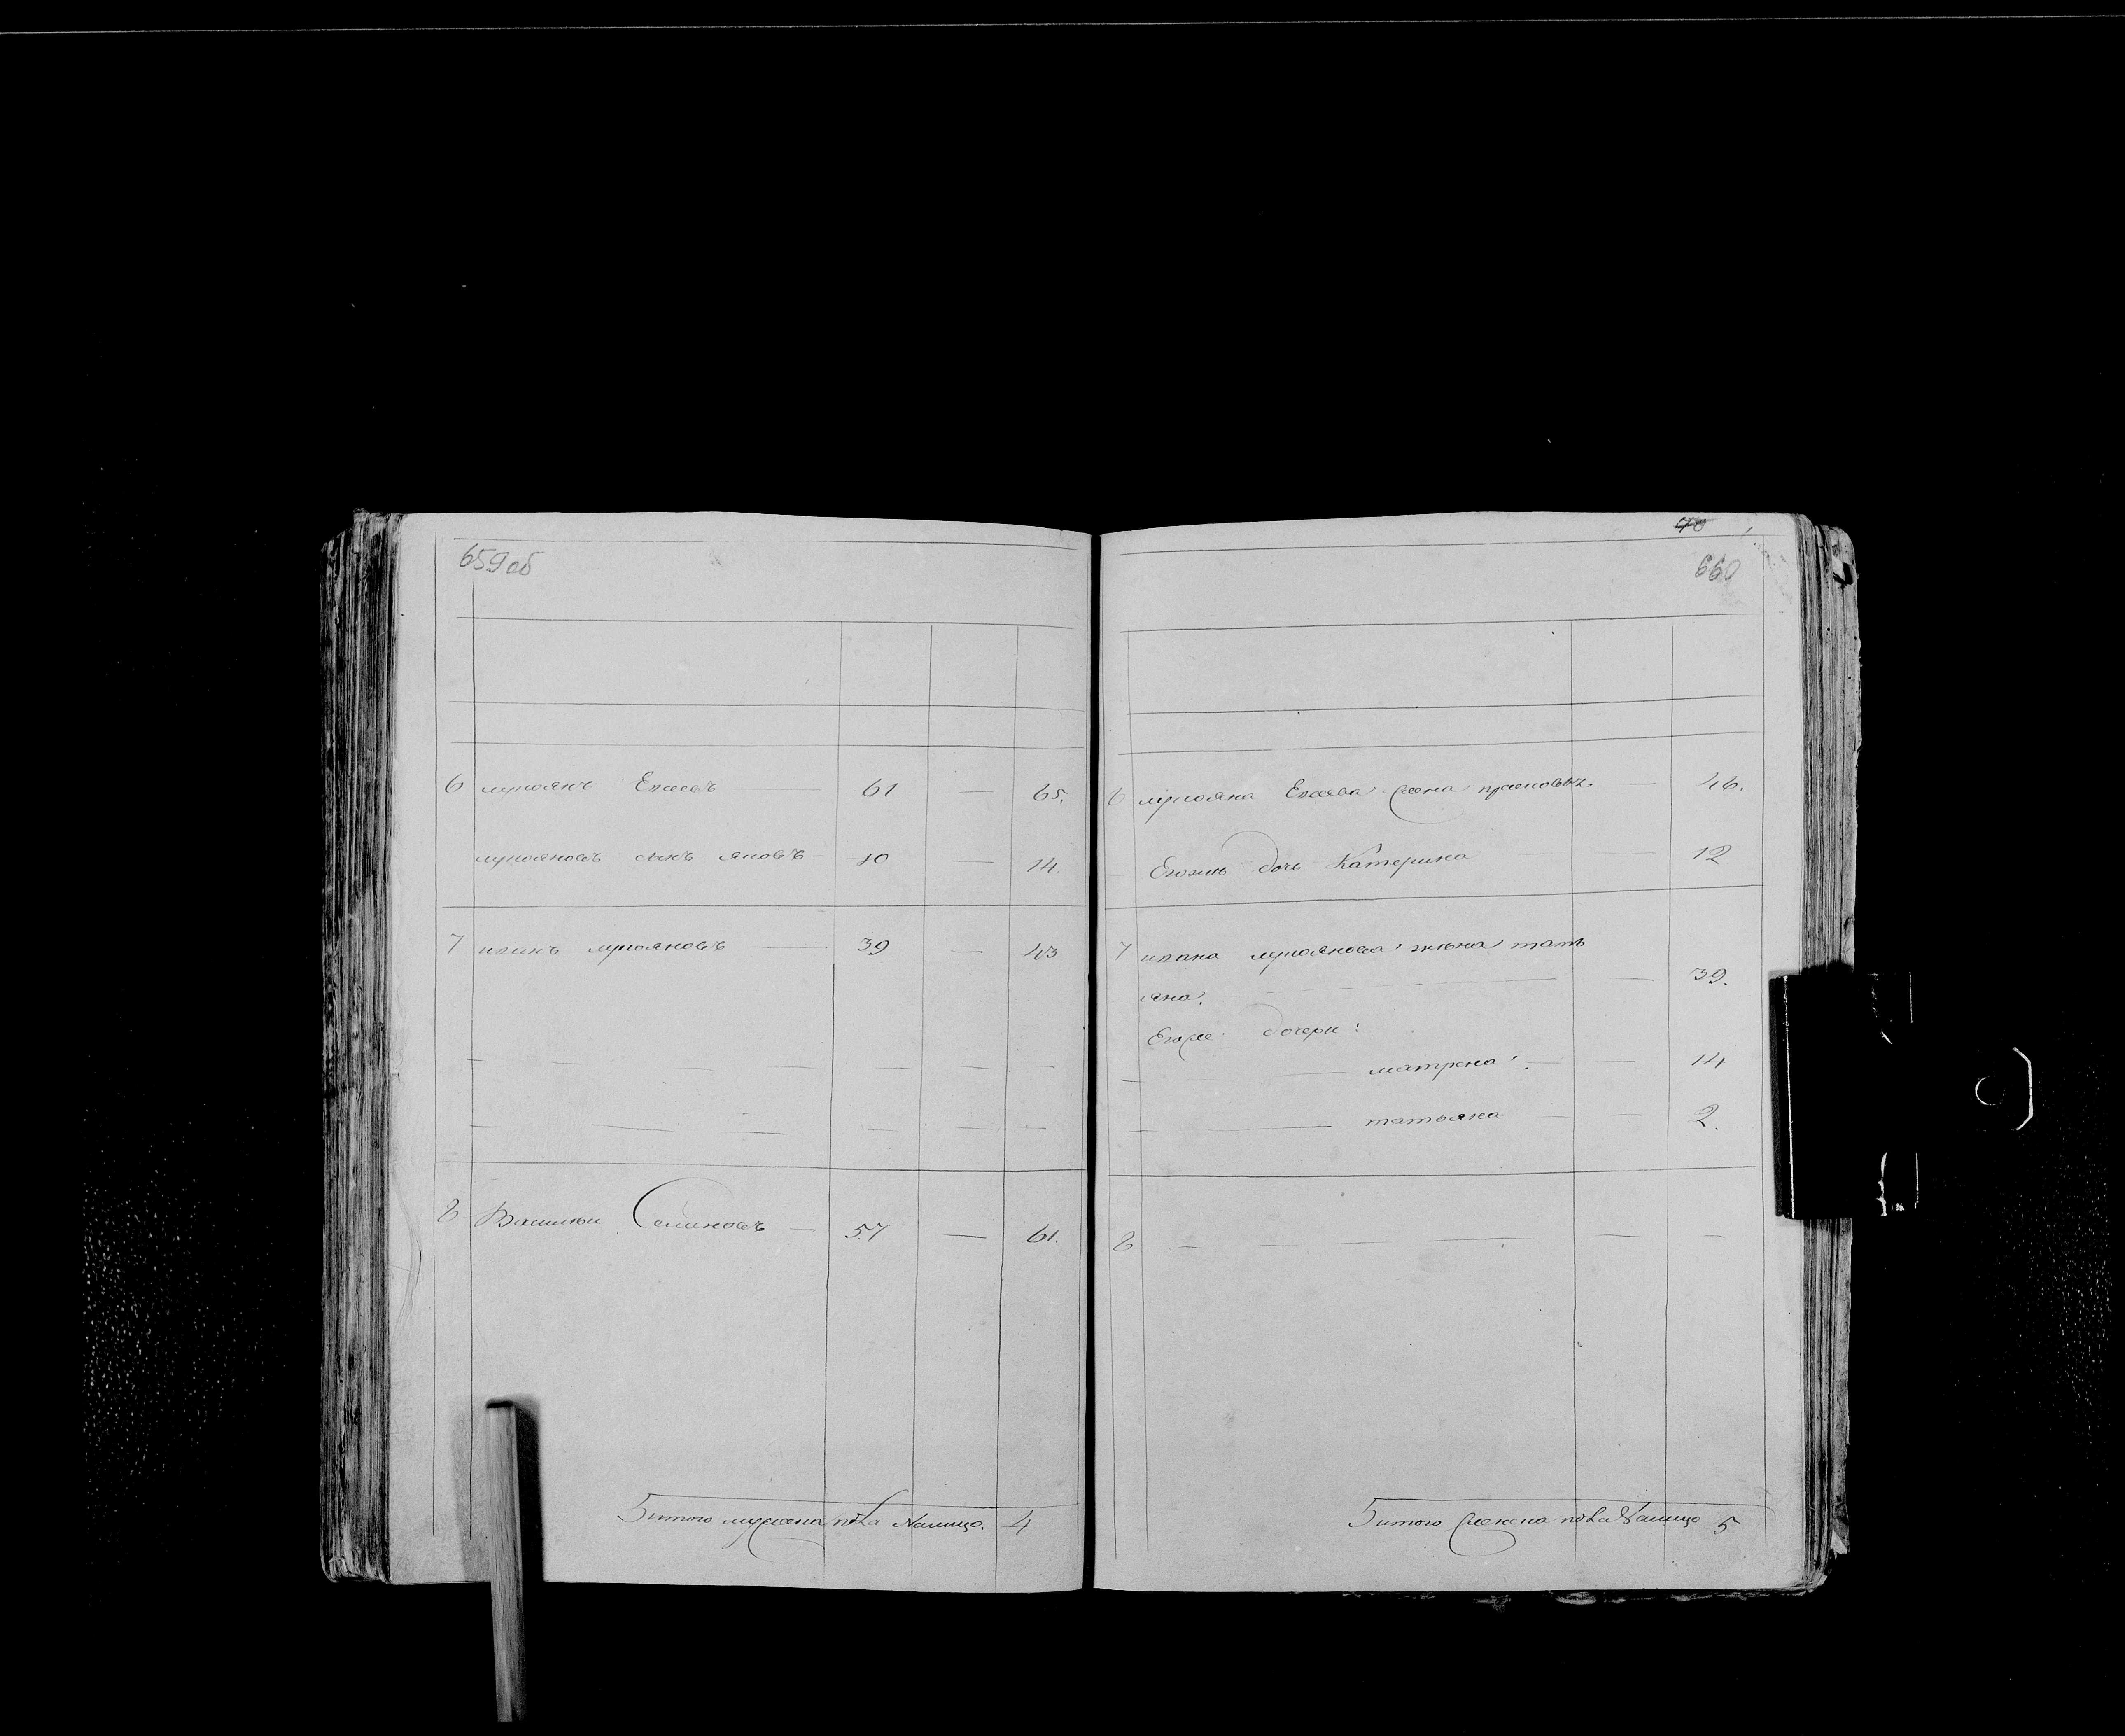 659 об
6 лукоянъ Елеевъ 61 — 65.
лукояновъ сынъ яковъ 10 — 14.
7 иванъ лукояновъ — 39 — 43
8 Василеи Семеновъ — 57 — 61.
итого мужеска пола налицо. 4
40
660
6 лукояна Елеева жена — 46.
Егожъ дочь Катерина — 12
7 ивана лукоянова жена тать
яна. — 39.
Егоже дочери:
матрена. — 14
татьяна — 2.
8 — — —
итого женска пола Налицо 5